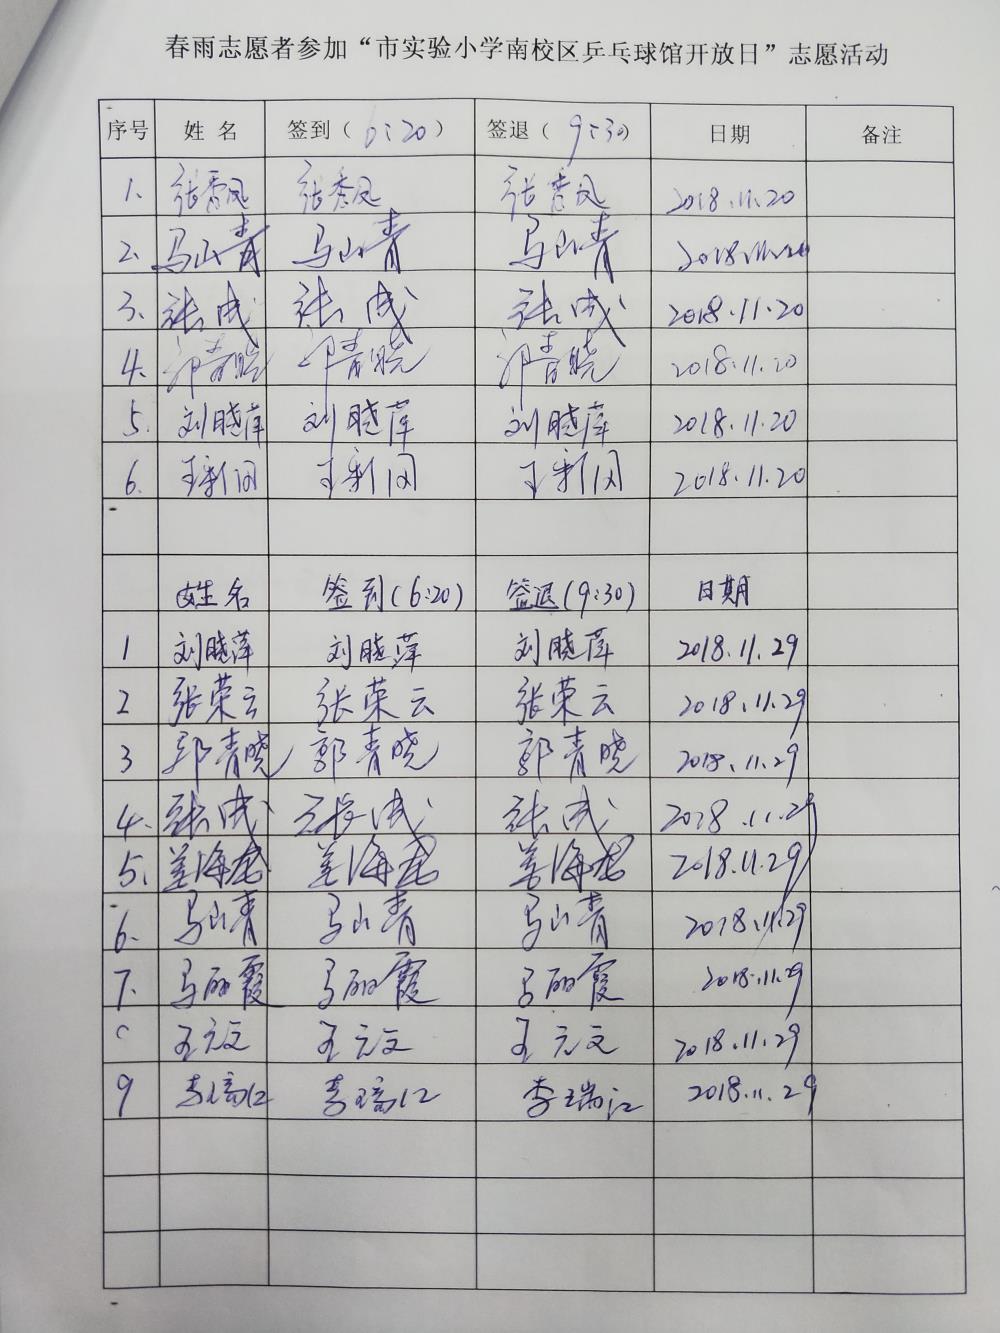 春雨志愿者参加“市实验小学南校区乒乓球馆开放日”志愿活动
序号 姓 名 签到（6:20） 签退（9:30） 日期 备注
1. 张秀凤 张秀凤 张秀凤 2018.11.20
2. 马山青 马山青 马山青 2018.11.20
3. 张成 张成 张成 2018.11.20
4. 郭青晓 郭青晓 郭青晓 2018.11.20
5. 刘晓萍 刘晓萍 刘晓萍 2018.11.20
6. 王新 王新 王新 2018.11.20
姓名 签到(6:20) 签退(9:30) 日期
1 刘晓萍 刘晓萍 刘晓萍 2018.11.29
2 张荣云 张荣云 张荣云 2018.11.29
3 郭青晓 郭青晓 郭青晓 2018.11.29
4. 张成 张成 张成 2018.11.29
5. 姜海龙 姜海龙 姜海龙 2018.11.29
6. 马山青 马山青 马山青 2018.11.29
7. 马丽霞 马丽霞 马丽霞 2018.11.29
王元文 王元文 王元文 2018.11.29
9 李瑞江 李瑞江 李瑞江 2018.11.29